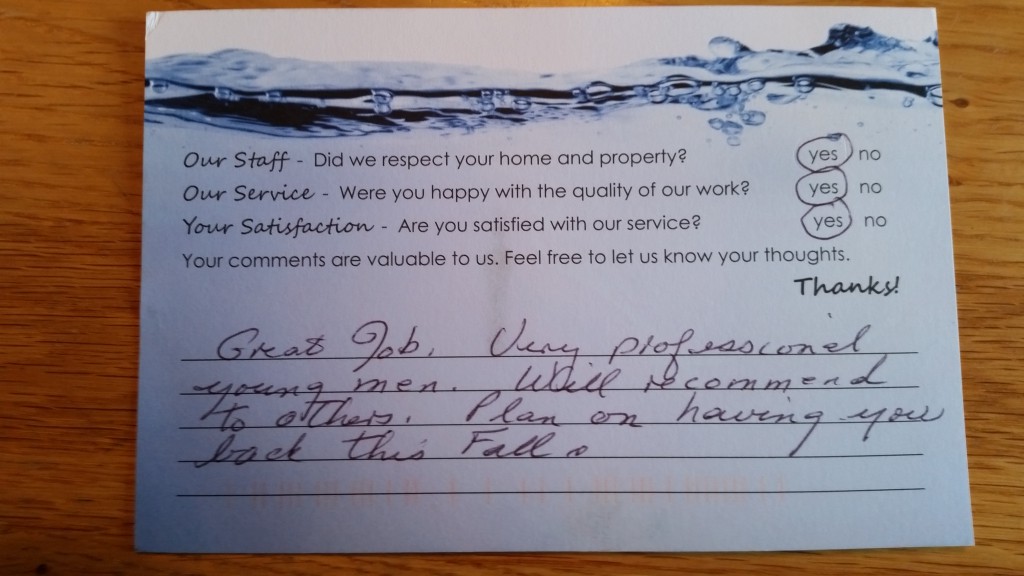 Our Staff - Did we respect your home and property? yes no
Our Service - Were you happy with the quality of our work? yes no
Your Satisfaction - Are you satisfied with our service? yes no
Your comments are valuable to us. Feel free to let us know your thoughts.
Thanks!
Great Job. Very professional
young men. Will recommend
to others. Plan on having you
back this Fall.